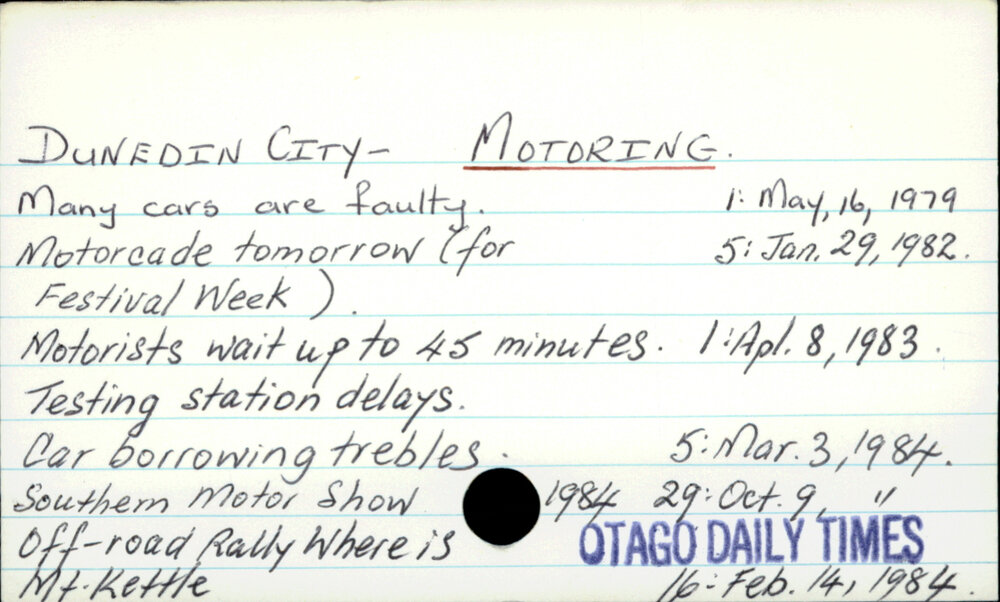 DUNEDIN CITY- MOTORING.
Many cars are faulty. 1: May, 16, 1979
Motorcade tomorrow (for 5: Jan. 29, 1982.
Festival Week ).
Motorists wait up to 45 minutes. 1: Apl. 8, 1983.
Testing station delays.
Car borrowing trebles. 5: Mar. 3, 1984.
Southern Motor Show 1984 29: Oct. 9, "
Off-road Rally Where is OTAGO DAILY TIMES
Mt. Kettle 16: Feb. 14, 1984.